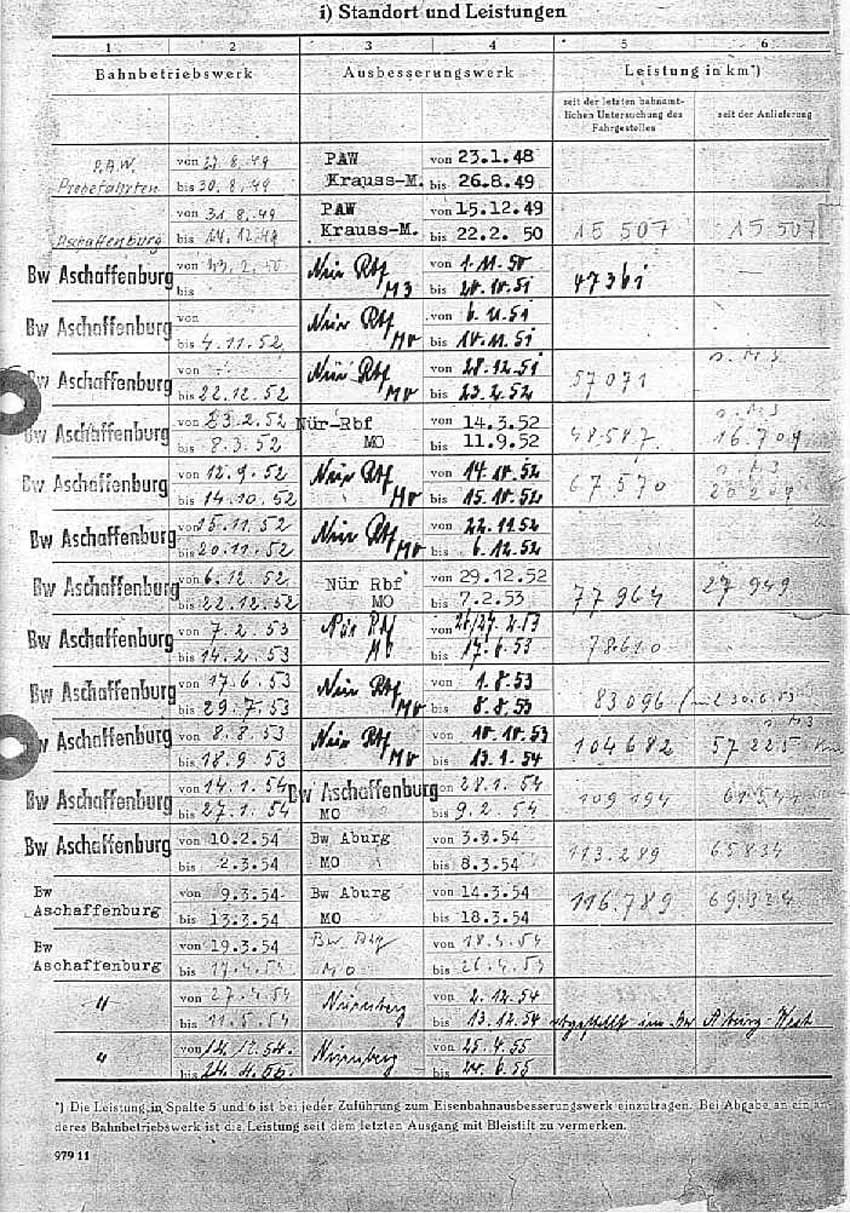 i) Standort und Leistungen
1 2 3 4 5 6
Bahnbetriebswerk Ausbesserungswerk Leistung in km*)
seit der letzten bahnamt-
lichen Untersuchung des
Fahrgestelles
seit der Anlieferung
P.A.W. von 27.8.49 PAW von 23.1.48
Probefahrten bis 30.8.49 Krauss-M. bis 26.8.49
von 31.8.49 PAW von 15.12.49
Aschaffenburg bis 14.12.49 Krauss-M. bis 22.2. 50 15 507 15 507
Bw Aschaffenburg von Nür Rbf von 1.11.50
bis bis 47361
Bw Aschaffenburg von Nür Rbf von 6.11.51
bis 4.11.52 bis
Bw Aschaffenburg von Nür Rbf von 28.12.51
bis 22.12.52 bis 23.2.52 57071
Bw Aschaffenburg von 23.2.52 Nür-Rbf von 14.3.52
bis 8.3.52 MO bis 11.9.52 48 587 16.709
Bw Aschaffenburg von 12.9.52 Nür Rbf von 14.10.52
bis 14.10.52 bis 15.10.52 67 570
Bw Aschaffenburg von 15.11.52 Nür Rbf von 22.11.52
bis 20.11.52 bis 6.12.52
Bw Aschaffenburg von 6.12 52 Nür Rbf von 29.12.52
bis 22.12.52 MO bis 7.2.53 77 964 27 949
Bw Aschaffenburg von 7.2.53 Nür Rbf von 26/27.2.53
bis 14.2.53 bis 17.6.53 78.610
Bw Aschaffenburg von 17.6.53 Nür Rbf von 1.8.53
bis 29.7.53 bis 8.8.53 83 096
Bw Aschaffenburg von 8.8.53 Nür Rbf von 10.10.53
bis 18.9 53 bis 13.1.54 104 682 57 225 km
Bw Aschaffenburg von 14.1.54 Bw Aschaffenburg von 28.1.54
bis 27.1.54 MO bis 9.2.54 109 194
Bw Aschaffenburg von 10.2.54 Bw Aburg von 3.3.54
bis 2.3.54 MO bis 8.3.54 113.289 65834
Bw von 9.3.54 Bw Aburg von 14.3.54
Aschaffenburg bis 13.3.54 MO bis 18.3.54 116.789 69.324
Bw von 19.3.54 Bw von 18.4.54
Aschaffenburg bis 17.4.54 MO bis 26.4.54
" von 27.4.54 Nürnberg von 2.12.54
bis 11.5.54 bis 13.12.54 abgestellt im Bw Aburg-West
" von 14.12.54. Nürnberg von 25.4.55
bis 24.4.55. bis 24.6.55
*) Die Leistung in Spalte 5 und 6 ist bei jeder Zuführung zum Eisenbahnausbesserungswerk einzutragen. Bei Abgabe an ein an-
deres Bahnbetriebswerk ist die Leistung seit dem letzten Ausgang mit Bleistift zu vermerken.
979 11